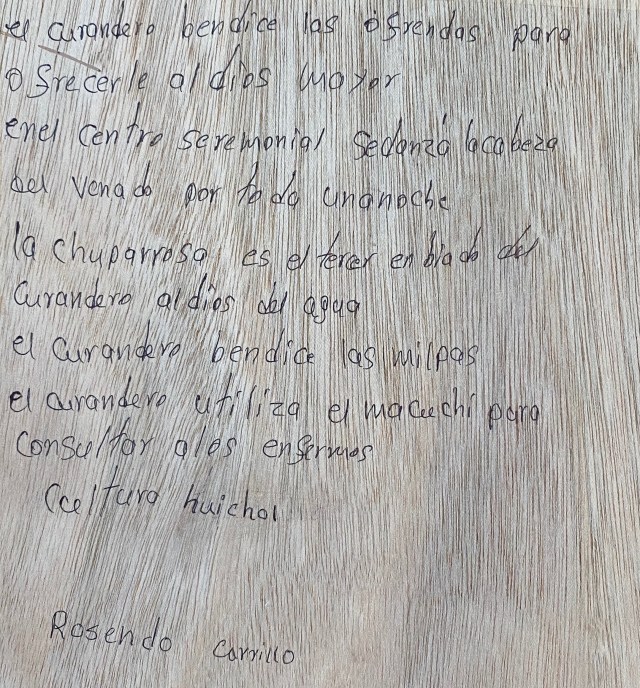 el curandero bendice las ofrendas para
ofrecerle al dios mayor
enel centro seremonial sedanza lacabeza
del venado por toda unanoche
la chuparrosa es el tercer enbiado del
Curandero al dios del agua
el Curandero bendice las milpas
el curandero utiliza el macuchi para
Consultar alos enfermos
Cultura huichol
Rosendo Carrillo